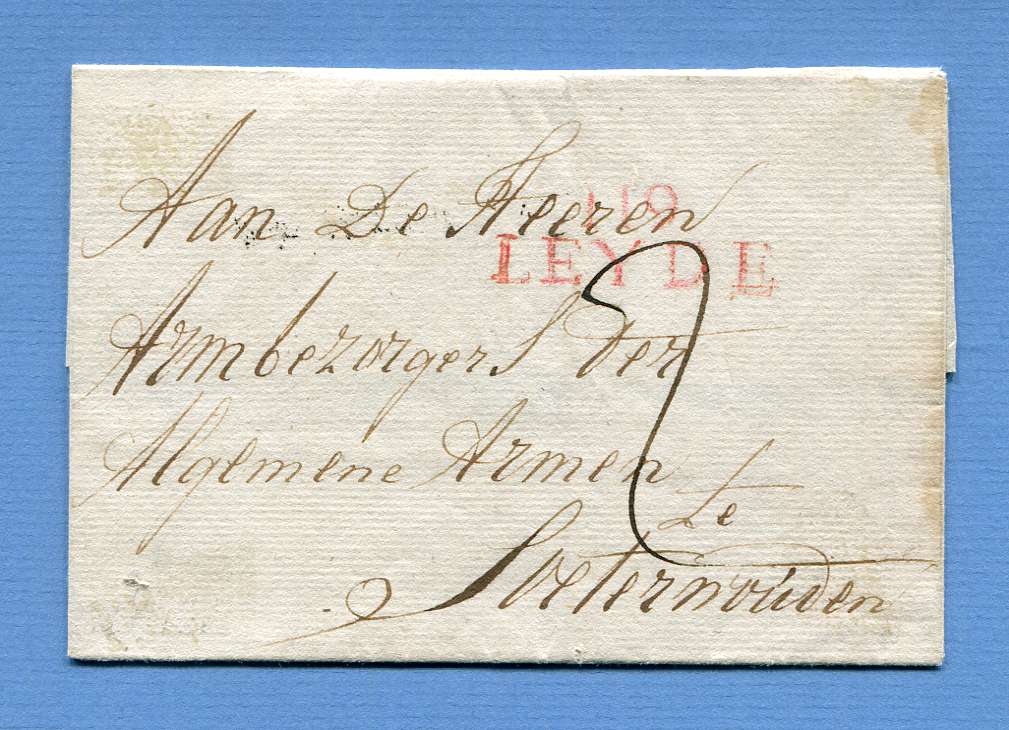 Aan De Heeren
119
LEYDE
2
Armbezorgers der
Algemene Armen
te
Soeterwouden